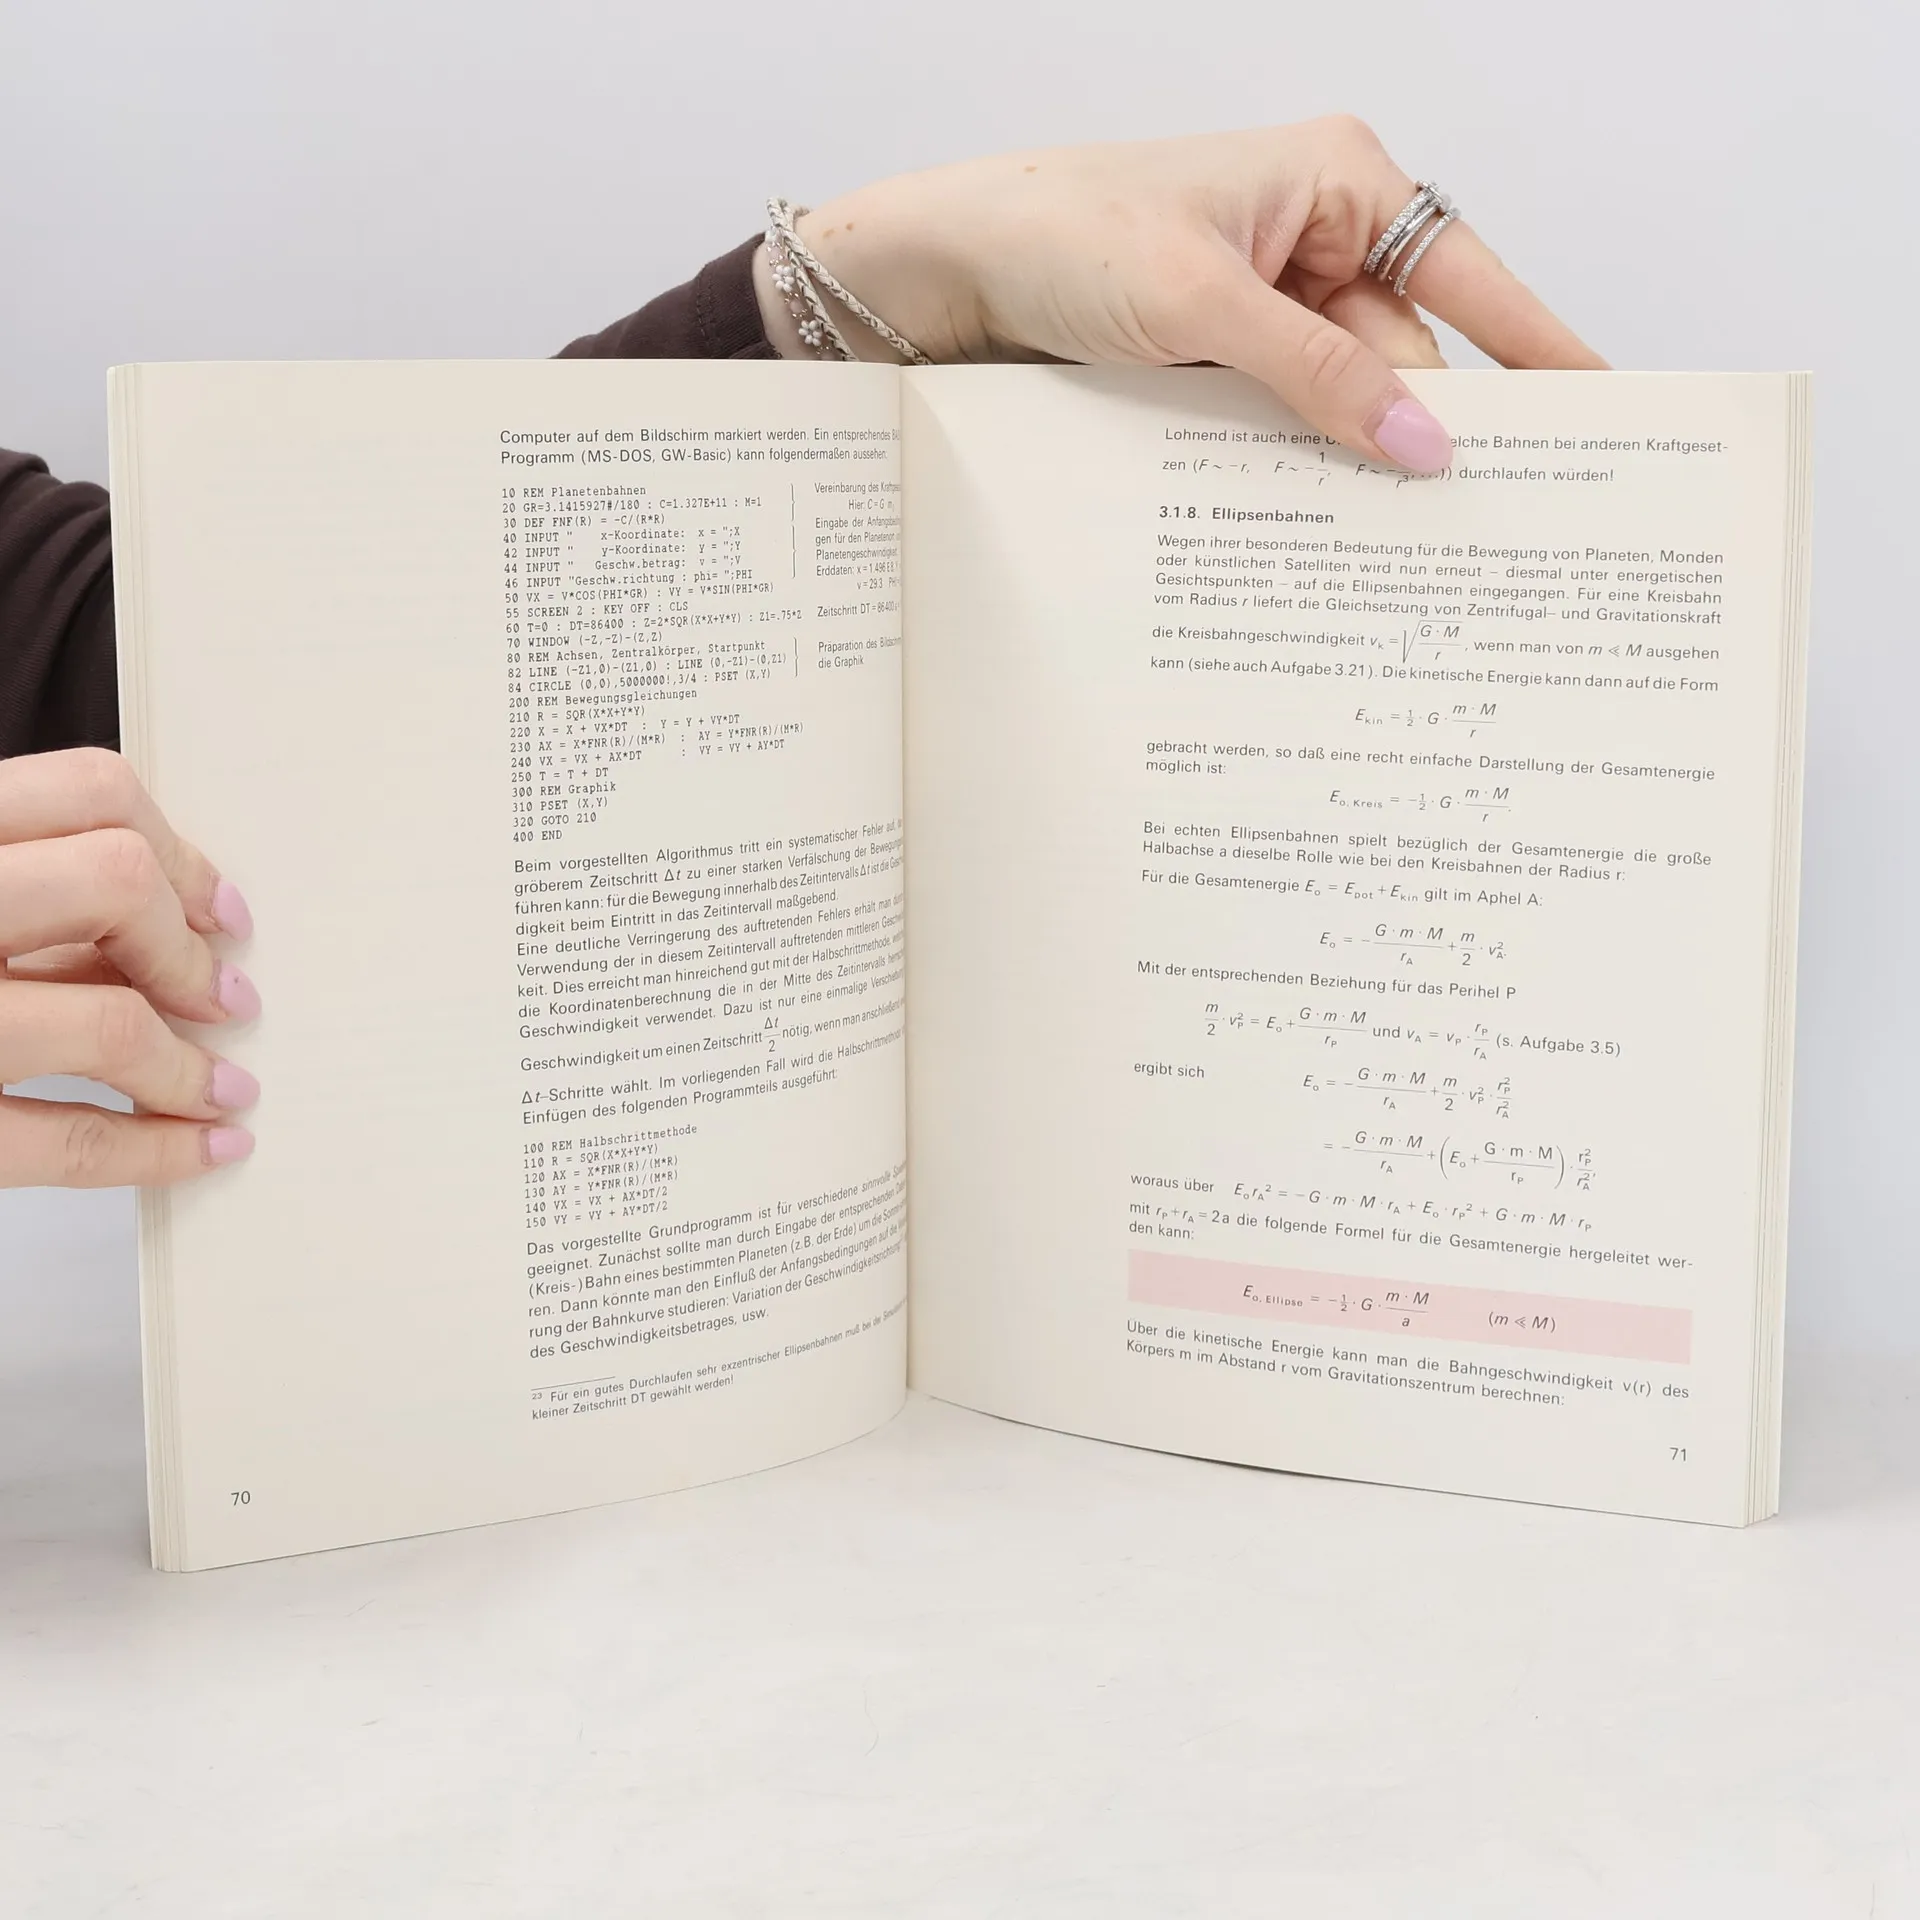 Computer auf dem Bildschirm markiert werden. Ein entsprechendes
Programm (MS-DOS, GW-Basic) kann folgendermaßen aussehen:
10 REM Planetenbahnen
20 GR=3.1415927#/180 : C=1.327E+11 : M=1
30 DEF FNF(R) = -C/(R*R)
40 INPUT " x-Koordinate: x = ";X
42 INPUT " y-Koordinate: y = ";Y
44 INPUT " Geschw.betrag: v = ";V
46 INPUT "Geschw.richtung : phi= ";PHI
50 VX = V*COS(PHI*GR) : VY = V*SIN(PHI*GR)
55 SCREEN 2 : KEY OFF : CLS
60 T=0 : DT=86400 : Z=2*SQR(X*X+Y*Y) : Z1=.75*Z
70 WINDOW (-Z,-Z)-(Z,Z)
80 REM Achsen, Zentralkörper, Startpunkt
82 LINE (-Z1,0)-(Z1,0) : LINE (0,-Z1)-(0,Z1)
84 CIRCLE (0,0),5000000!,3/4 : PSET (X,Y)
200 REM Bewegungsgleichungen
210 R = SQR(X*X+Y*Y)
220 X = X + VX*DT : Y = Y + VY*DT
230 AX = X*FNR(R)/(M*R) : AY = Y*FNR(R)/(M*R)
240 VX = VX + AX*DT : VY = VY + AY*DT
250 T = T + DT
300 REM Graphik
310 PSET (X,Y)
320 GOTO 210
400 END
Vereinbarung des
Hier: C = G · m
Eingabe der
gen für den Planetenort
Planetengeschwindigkeit
Erddaten: x = 1.496 E 8
v = 29.3
Zeitschritt DT = 86400
Präparation des
die Graphik
Beim vorgestellten Algorithmus tritt ein systematischer Fehler auf,
gröberem Zeitschritt Δt zu einer starken Verfälschung der
führen kann: für die Bewegung innerhalb des Zeitintervalls Δt ist die
digkeit beim Eintritt in das Zeitintervall maßgebend.
Eine deutliche Verringerung des auftretenden Fehlers erhält man
Verwendung der in diesem Zeitintervall auftretenden mittleren
keit. Dies erreicht man hinreichend gut mit der Halbschrittmethode,
die Koordinatenberechnung die in der Mitte des Zeitintervalls
Geschwindigkeit verwendet. Dazu ist nur eine einmalige
Geschwindigkeit um einen Zeitschritt Δt/2 nötig, wenn man anschließend
Δt–Schritte wählt. Im vorliegenden Fall wird die Halbschrittmethode
Einfügen des folgenden Programmteils ausgeführt:
100 REM Halbschrittmethode
110 R = SQR(X*X+Y*Y)
120 AX = X*FNR(R)/(M*R)
130 AY = Y*FNR(R)/(M*R)
140 VX = VX + AX*DT/2
150 VY = VY + AY*DT/2
Das vorgestellte Grundprogramm ist für verschiedene sinnvolle
geeignet. Zunächst sollte man durch Eingabe der entsprechenden
(Kreis-) Bahn eines bestimmten Planeten (z.B. der Erde) um die
ren. Dann könnte man den Einfluß der Anfangsbedingungen auf die
rung der Bahnkurve studieren: Variation der Geschwindigkeitsrichtung,
des Geschwindigkeitsbetrages, usw.
23 Für ein gutes Durchlaufen sehr exzentrischer Ellipsenbahnen muß bei der
kleiner Zeitschritt DT gewählt werden!
70
Lohnend ist auch eine Bahnen bei anderen Kraftgeset-
zen (F ~ −r, F ~ −1/r, durchlaufen würden!
3.1.8. Ellipsenbahnen
Wegen ihrer besonderen Bedeutung für die Bewegung von Planeten, Monden
oder künstlichen Satelliten wird nun erneut – diesmal unter energetischen
Gesichtspunkten – auf die Ellipsenbahnen eingegangen. Für eine Kreisbahn
vom Radius r liefert die Gleichsetzung von Zentrifugal– und Gravitationskraft
die Kreisbahngeschwindigkeit vₖ = √(G · M / r), wenn man von m ≪ M ausgehen
kann (siehe auch Aufgabe 3.21). Die kinetische Energie kann dann auf die Form
E_kin = ½ · G · m · M / r
gebracht werden, so daß eine recht einfache Darstellung der Gesamtenergie
möglich ist:
E_o, Kreis = −½ · G · m · M / r.
Bei echten Ellipsenbahnen spielt bezüglich der Gesamtenergie die große
Halbachse a dieselbe Rolle wie bei den Kreisbahnen der Radius r:
Für die Gesamtenergie E_o = E_pot + E_kin gilt im Aphel A:
E_o = − G · m · M / r_A + m/2 · v_A².
Mit der entsprechenden Beziehung für das Perihel P
m/2 · v_P² = E_o + G · m · M / r_P und v_A = v_P · r_P/r_A (s. Aufgabe 3.5)
ergibt sich E_o = − G · m · M / r_A + m/2 · v_P² · r_P²/r_A²
= − G · m · M / r_A + (E_o + G · m · M / r_P) · r_P²/r_A²,
woraus über E_o r_A² = − G · m · M · r_A + E_o · r_P² + G · m · M · r_P
mit r_P + r_A = 2a die folgende Formel für die Gesamtenergie hergeleitet wer-
den kann:
E_o, Ellipse = −½ · G · m · M / a (m ≪ M)
Über die kinetische Energie kann man die Bahngeschwindigkeit v(r) des
Körpers m im Abstand r vom Gravitationszentrum berechnen:
71